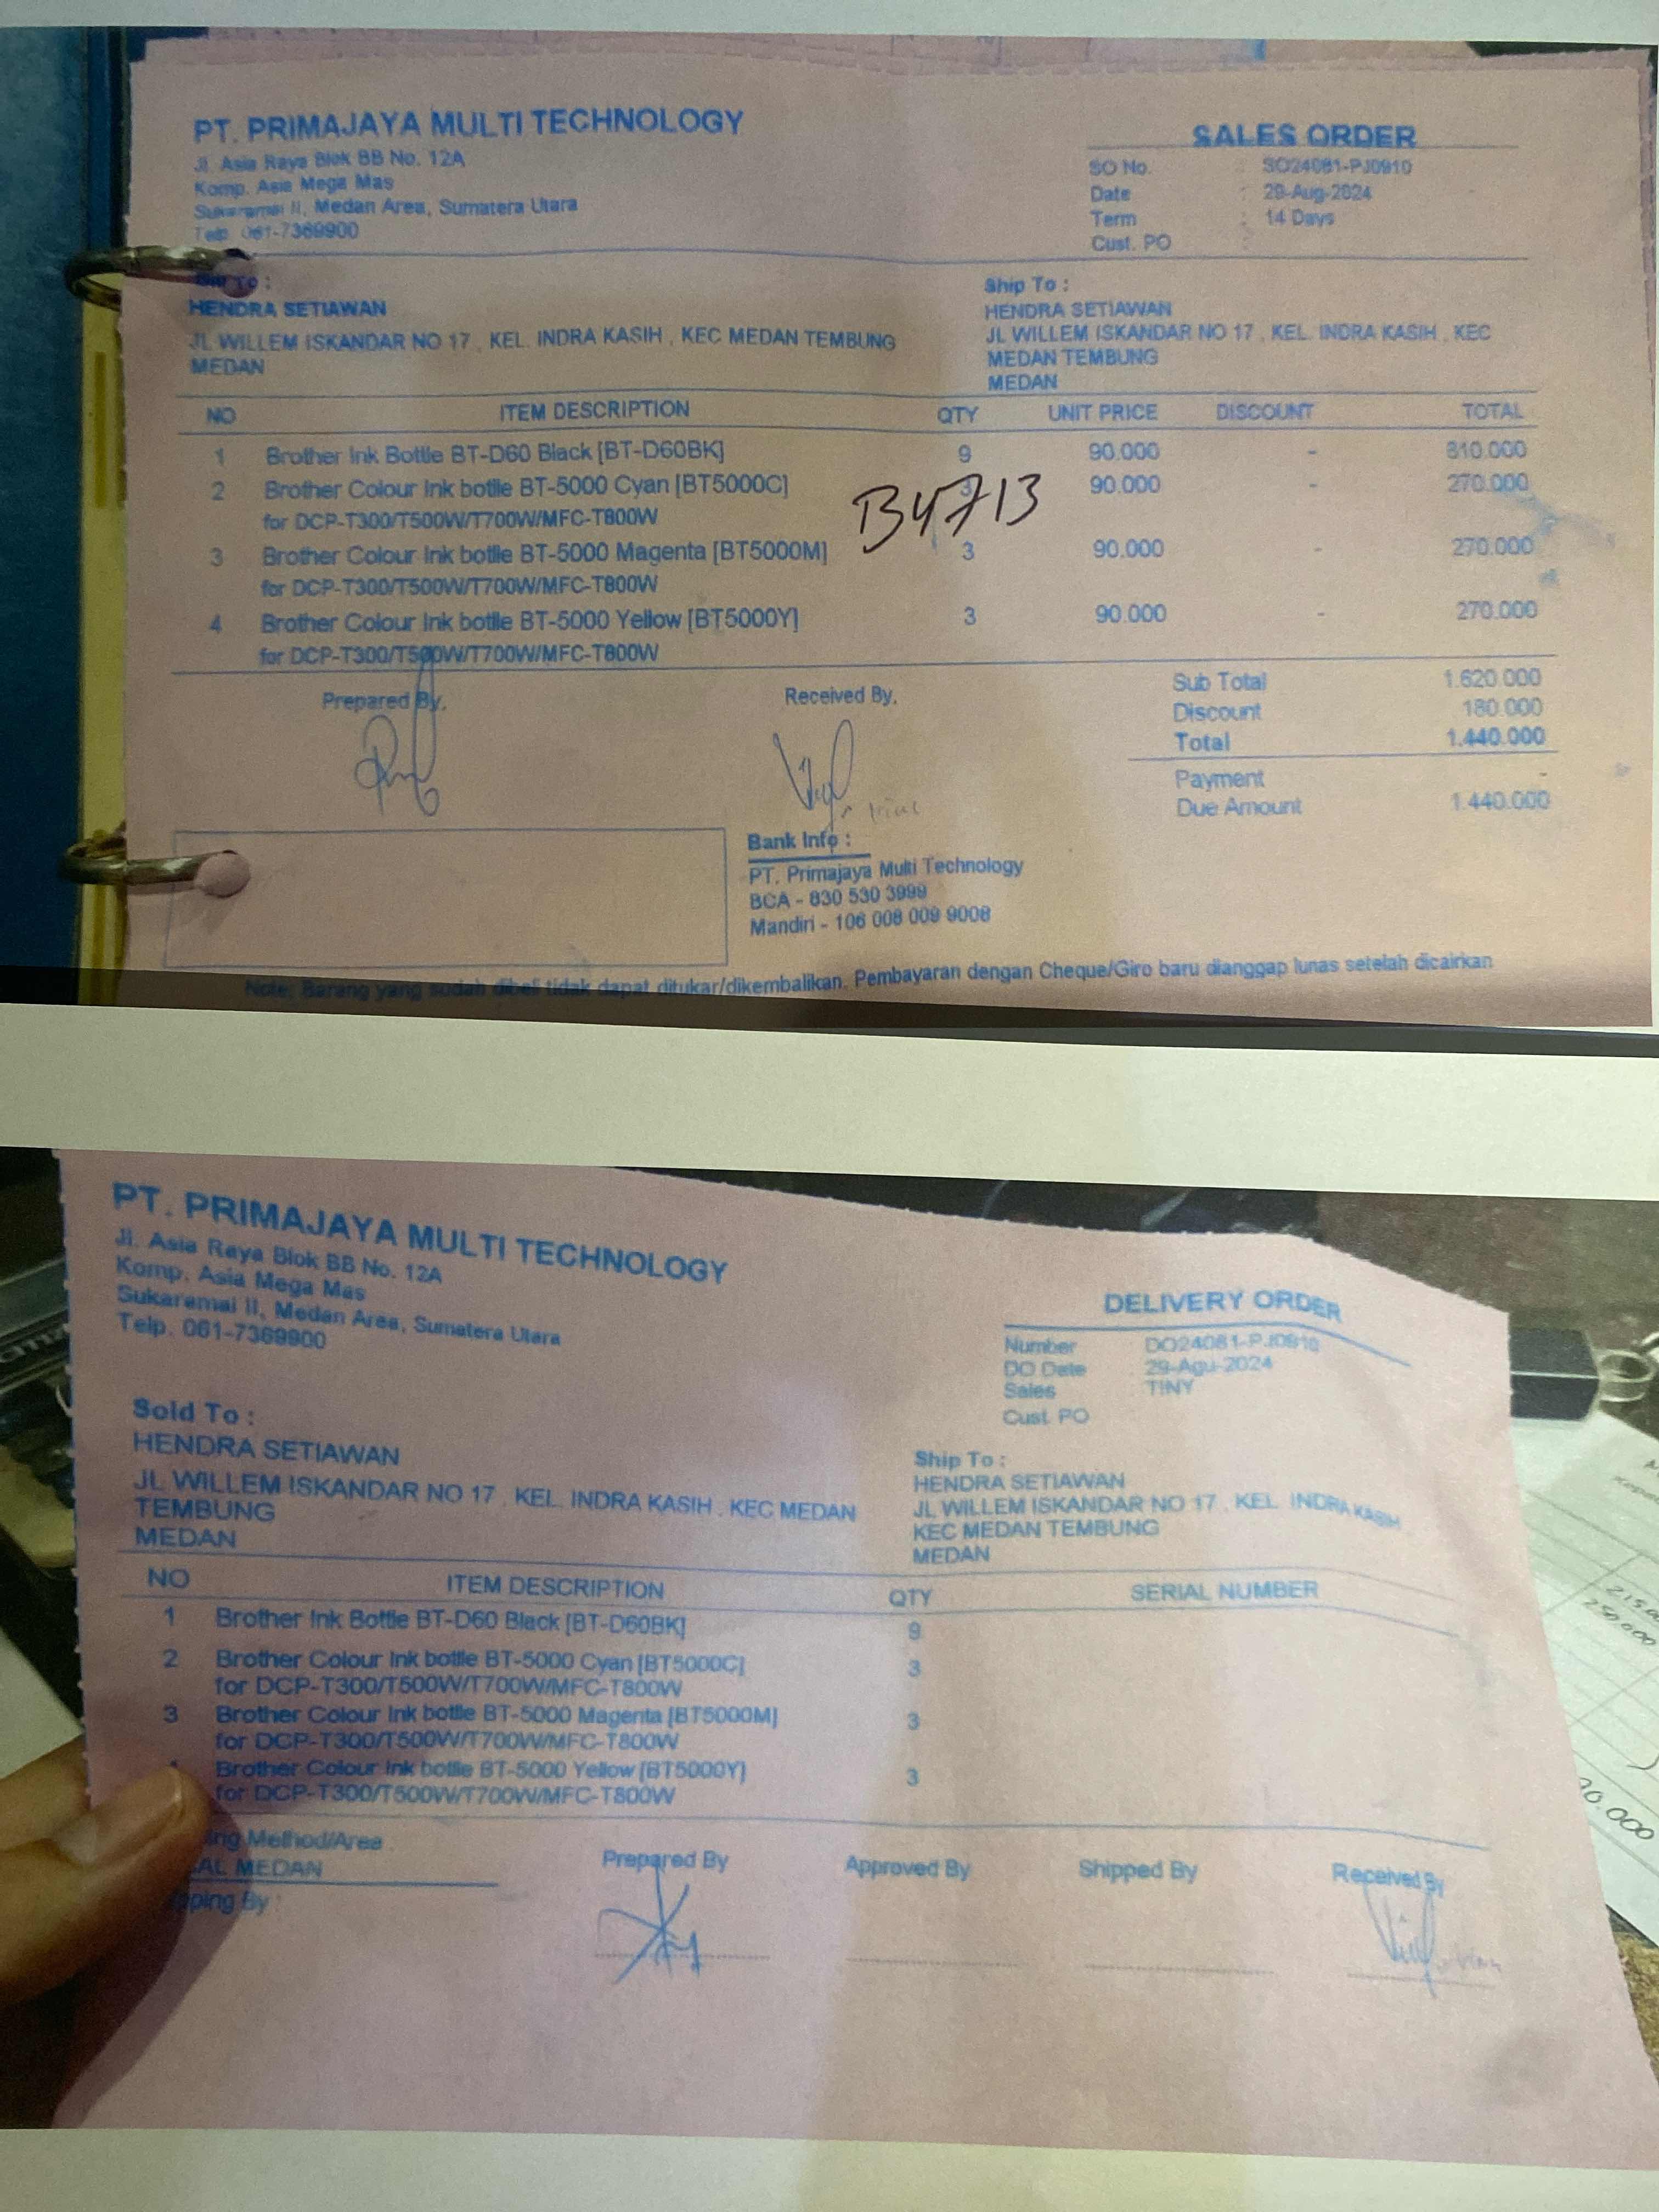 PT. PRIMAJAYA MULTI TECHNOLOGY
Jl. Asia Raya Blok BB No. 12A
Komp. Asia Mega Mas
Sukaramai II, Medan Area, Sumatera Utara
Telp. 061-7369900
SALES ORDER
SO No. : SO24081-PJ0910
Date : 29-Aug-2024
Term : 14 Days
Cust. PO :
To :
HENDRA SETIAWAN
JL WILLEM ISKANDAR NO 17 , KEL. INDRA KASIH , KEC MEDAN TEMBUNG
MEDAN
Ship To :
HENDRA SETIAWAN
JL WILLEM ISKANDAR NO 17 , KEL. INDRA KASIH , KEC
MEDAN TEMBUNG
MEDAN
NO ITEM DESCRIPTION QTY UNIT PRICE DISCOUNT TOTAL
1 Brother Ink Bottle BT-D60 Black [BT-D60BK] 9 90.000 - 810.000
2 Brother Colour Ink bottle BT-5000 Cyan [BT5000C] 3 90.000 - 270.000
for DCP-T300/T500W/T700W/MFC-T800W
B4713
3 Brother Colour Ink bottle BT-5000 Magenta [BT5000M] 3 90.000 - 270.000
for DCP-T300/T500W/T700W/MFC-T800W
4 Brother Colour Ink bottle BT-5000 Yellow [BT5000Y] 3 90.000 - 270.000
for DCP-T300/T500W/T700W/MFC-T800W
Prepared By,
Received By,
Sub Total 1.620.000
Discount 180.000
Total 1.440.000
Payment -
Due Amount 1.440.000
Bank Info :
PT. Primajaya Multi Technology
BCA - 830 530 3999
Mandiri - 106 008 009 9008
Note: Barang yang sudah dibeli tidak dapat ditukar/dikembalikan. Pembayaran dengan Cheque/Giro baru dianggap lunas setelah dicairkan
PT. PRIMAJAYA MULTI TECHNOLOGY
Jl. Asia Raya Blok BB No. 12A
Komp. Asia Mega Mas
Sukaramai II, Medan Area, Sumatera Utara
Telp. 061-7369900
DELIVERY ORDER
Number : DO24081-PJ0910
DO Date : 29-Agu-2024
Sales : TINY
Cust. PO
Sold To :
HENDRA SETIAWAN
JL WILLEM ISKANDAR NO 17 , KEL. INDRA KASIH , KEC MEDAN
TEMBUNG
MEDAN
Ship To :
HENDRA SETIAWAN
JL WILLEM ISKANDAR NO 17 , KEL. INDRA KASIH
KEC MEDAN TEMBUNG
MEDAN
NO ITEM DESCRIPTION QTY SERIAL NUMBER
1 Brother Ink Bottle BT-D60 Black [BT-D60BK] 9
2 Brother Colour Ink bottle BT-5000 Cyan [BT5000C] 3
for DCP-T300/T500W/T700W/MFC-T800W
3 Brother Colour Ink bottle BT-5000 Magenta [BT5000M] 3
for DCP-T300/T500W/T700W/MFC-T800W
Brother Colour Ink bottle BT-5000 Yellow [BT5000Y] 3
for DCP-T300/T500W/T700W/MFC-T800W
ing Method/Area
AL MEDAN
pping By :
Prepared By
Approved By
Shipped By
Received By
250.000
00.000